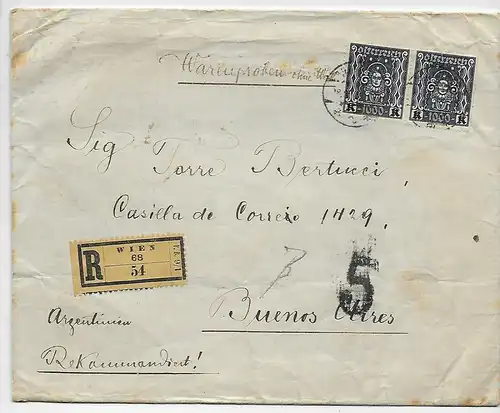 Warenproben ohne Wert
österreich österreich
K 1000 K K 1000 K
Sig Torre Bertucci
Casilla de Correio 1429,
R WIEN
68
54
5
Buenos Aires
Argentinien
Rekommandiert!